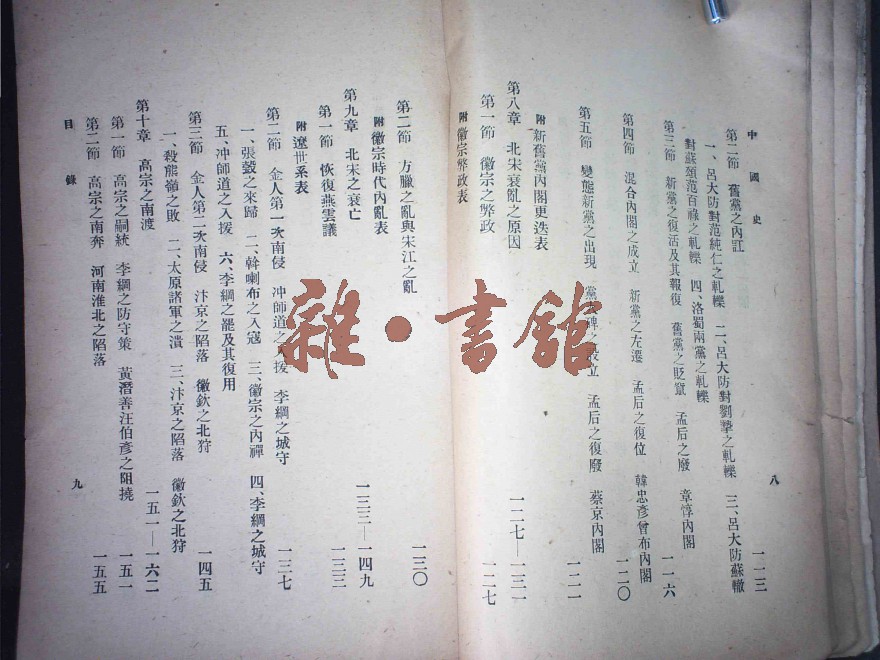 中國史
八
第二節 舊黨之內訌 一一三
一、呂大防對范純仁之軋轢 二、呂大防對劉摯之軋轢 三、呂大防蘇轍
對蘇頌范百祿之軋轢 四、洛蜀兩黨之軋轢
第三節 新黨之復活及其報復 舊黨之貶竄 孟后之廢 章惇內閣 一一六
第四節 混合內閣之成立 新黨之左遷 孟后之復位 韓忠彥曾布內閣 一二〇
第五節 變態新黨之出現 黨 碑之成立 孟后之復廢 蔡京內閣 一二一
附 新舊黨內閣更迭表
第八章 北宋衰亂之原因 一二七—一三一
第一節 徽宗之弊政 一二七
附 徽宗弊政表
第二節 方臘之亂與宋江之亂 一三〇
附 徽宗時代內亂表
第九章 北宋之衰亡 一三三—一四九
第一節 恢復燕雲議 一三三
附 遼世系表
第二節 金人第一次南侵 冲師道之入援 李綱之城守 一三七
一、張瑴之來歸 二、斡喇布之入寇 三、徽宗之內禪 四、李綱之城守
五、冲師道之入援 六、李綱之罷及其復用
第三節 金人第二次南侵 汴京之陷落 徽欽之北狩 一四五
一、殺熊嶺之敗 二、太原諸軍之潰 三、汴京之陷落 徽欽之北狩
第十章 高宗之南渡 一五一—一六二
第一節 高宗之嗣統 李綱之防守策 黃潛善汪伯彥之阻撓 一五一
第二節 高宗之南奔 河南淮北之陷落 一五五
目錄
九
雜·書館